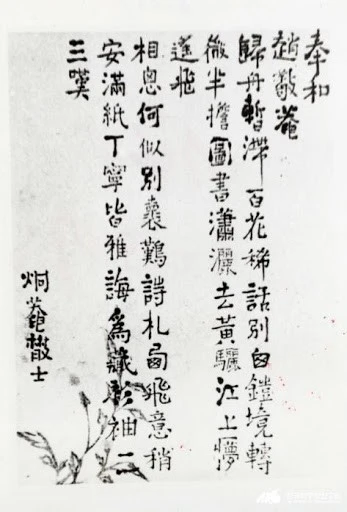 奉和
趙敬菴
歸舟暫滯百花稀話別境轉
微半擔圖書瀟灑去黃驪江上夢
飛
相思何似別難詩札飛意稍
安滿紙丁寧皆雅誨爲藏袖二
三嘆
炯菴散士